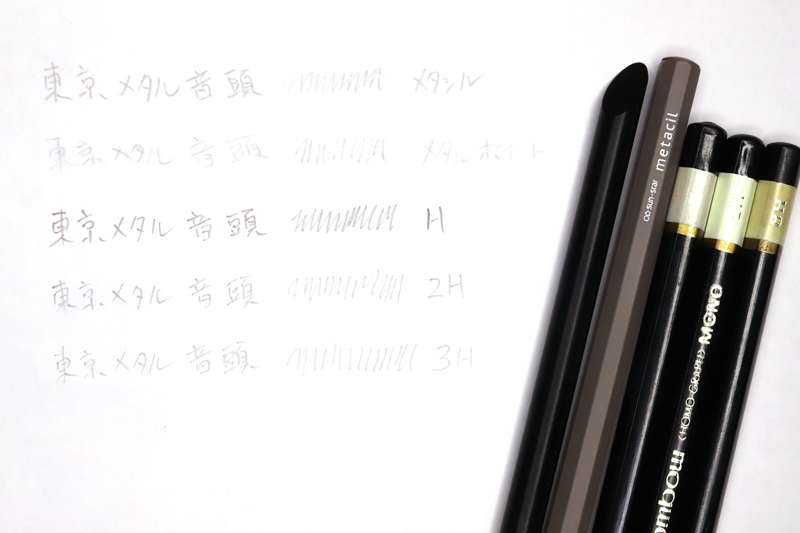 東京メタル音頭 メタシル
東京メタル音頭 メタルポイント
東京メタル音頭 H
東京メタル音頭 2H
東京メタル音頭 3H
sun-star metacil
MONO
<HOMO-GRAPH>
ombow